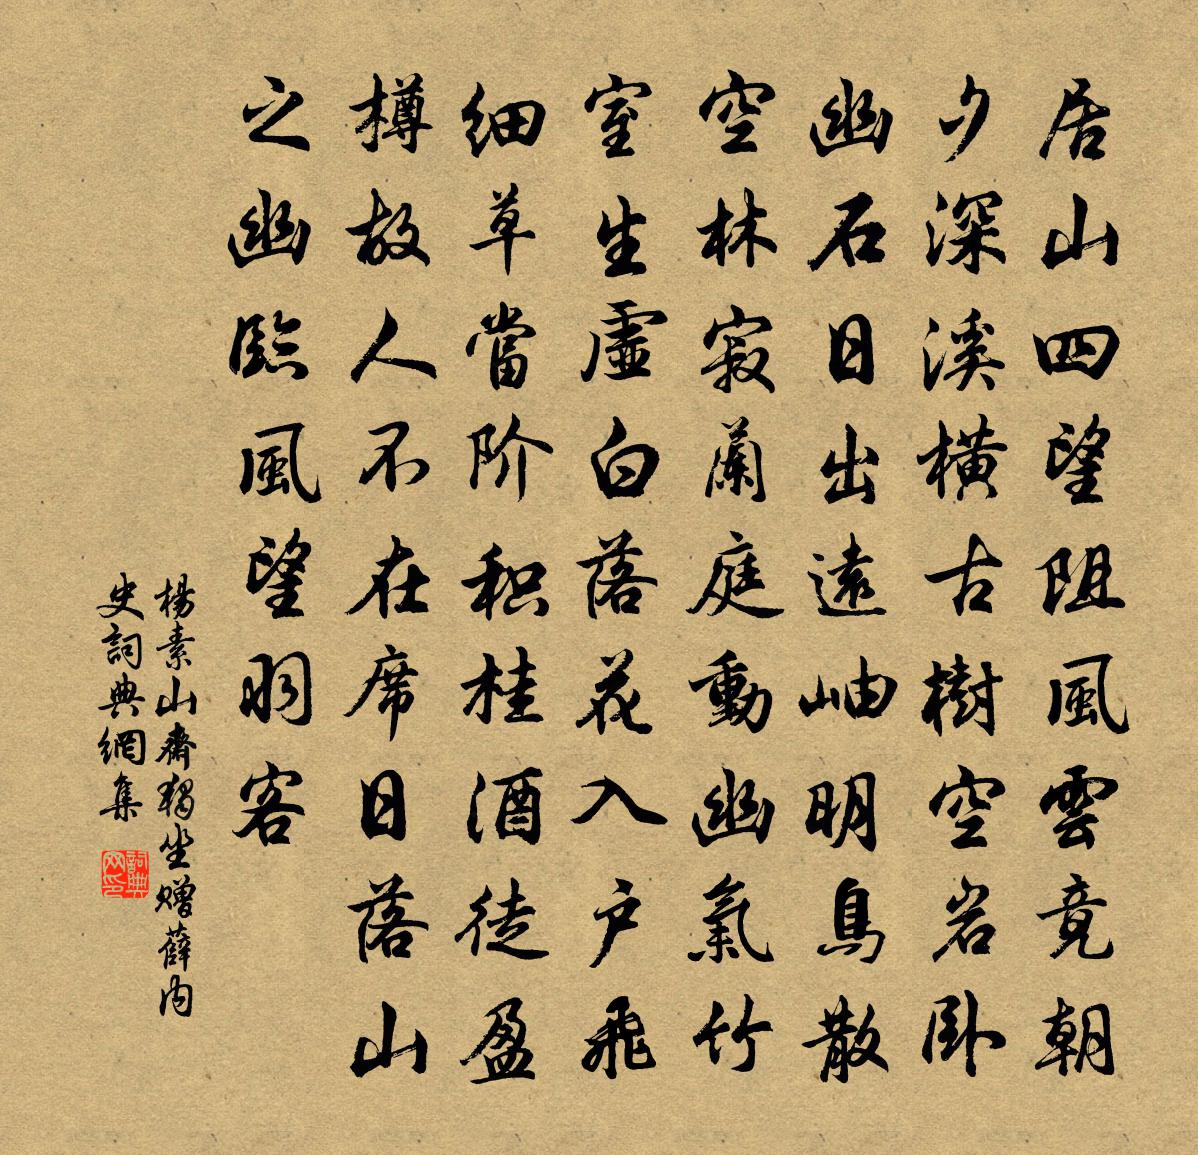 居山四望阻風雲竟朝
夕深溪橫古樹空岩卧
幽石日出遠岫明鳥散
空林寂蘭庭動幽氣竹
室生虛白落花入户飛
細草當阶积桂酒徒盈
樽故人不在席日落山
之幽臨風望羽客
楊素山齋獨坐贈薛内
史詞典網集
詞典
网印